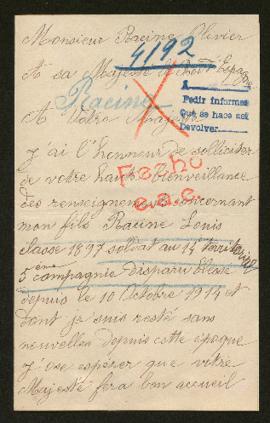 Monsieur Racine Olivier
4192
A sa Majesté le Roi d'Espagne
Racine
A Votre Majesté
A
Pedir informes
Que se hace
Devolver
J'ai l'honneur de solliciter
de votre haute Bienveillance
Fecho
des renseignements concernant
mon fils Racine Louis
classe 1897 soldat au 14
5ème compagnie disparu
depuis le 10 Octobre 1914 et
dont je suis resté sans
nouvelles depuis cette époque
j'ose espérer que votre
Majesté fera bon accueil